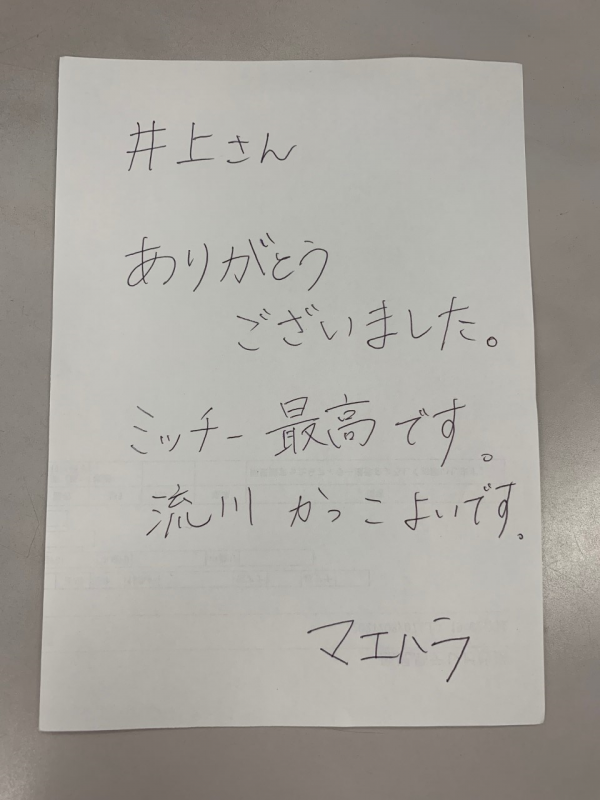 井上さん
ありがとう
ございました。
ミッチー最高です。
流川かっこよいです。
マエハラ